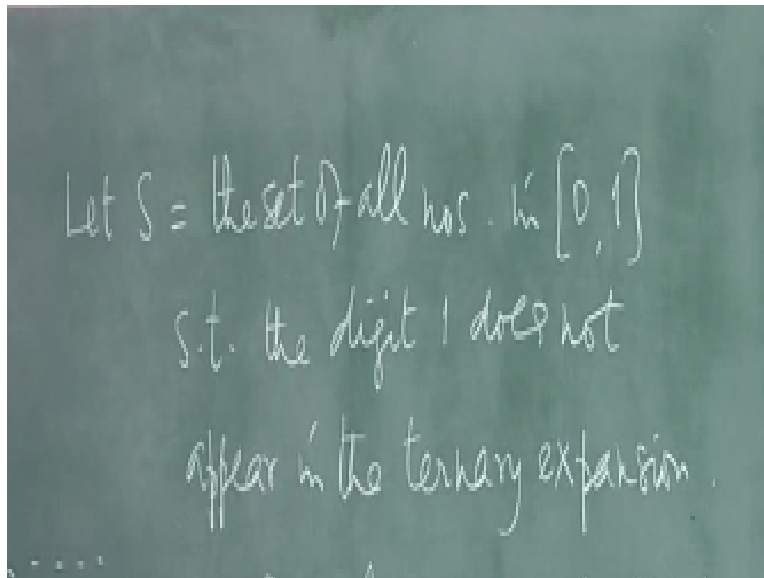 Let S = the set of all nos. in [0, 1]
s.t. the digit 1 does not
appear in the ternary expansion.